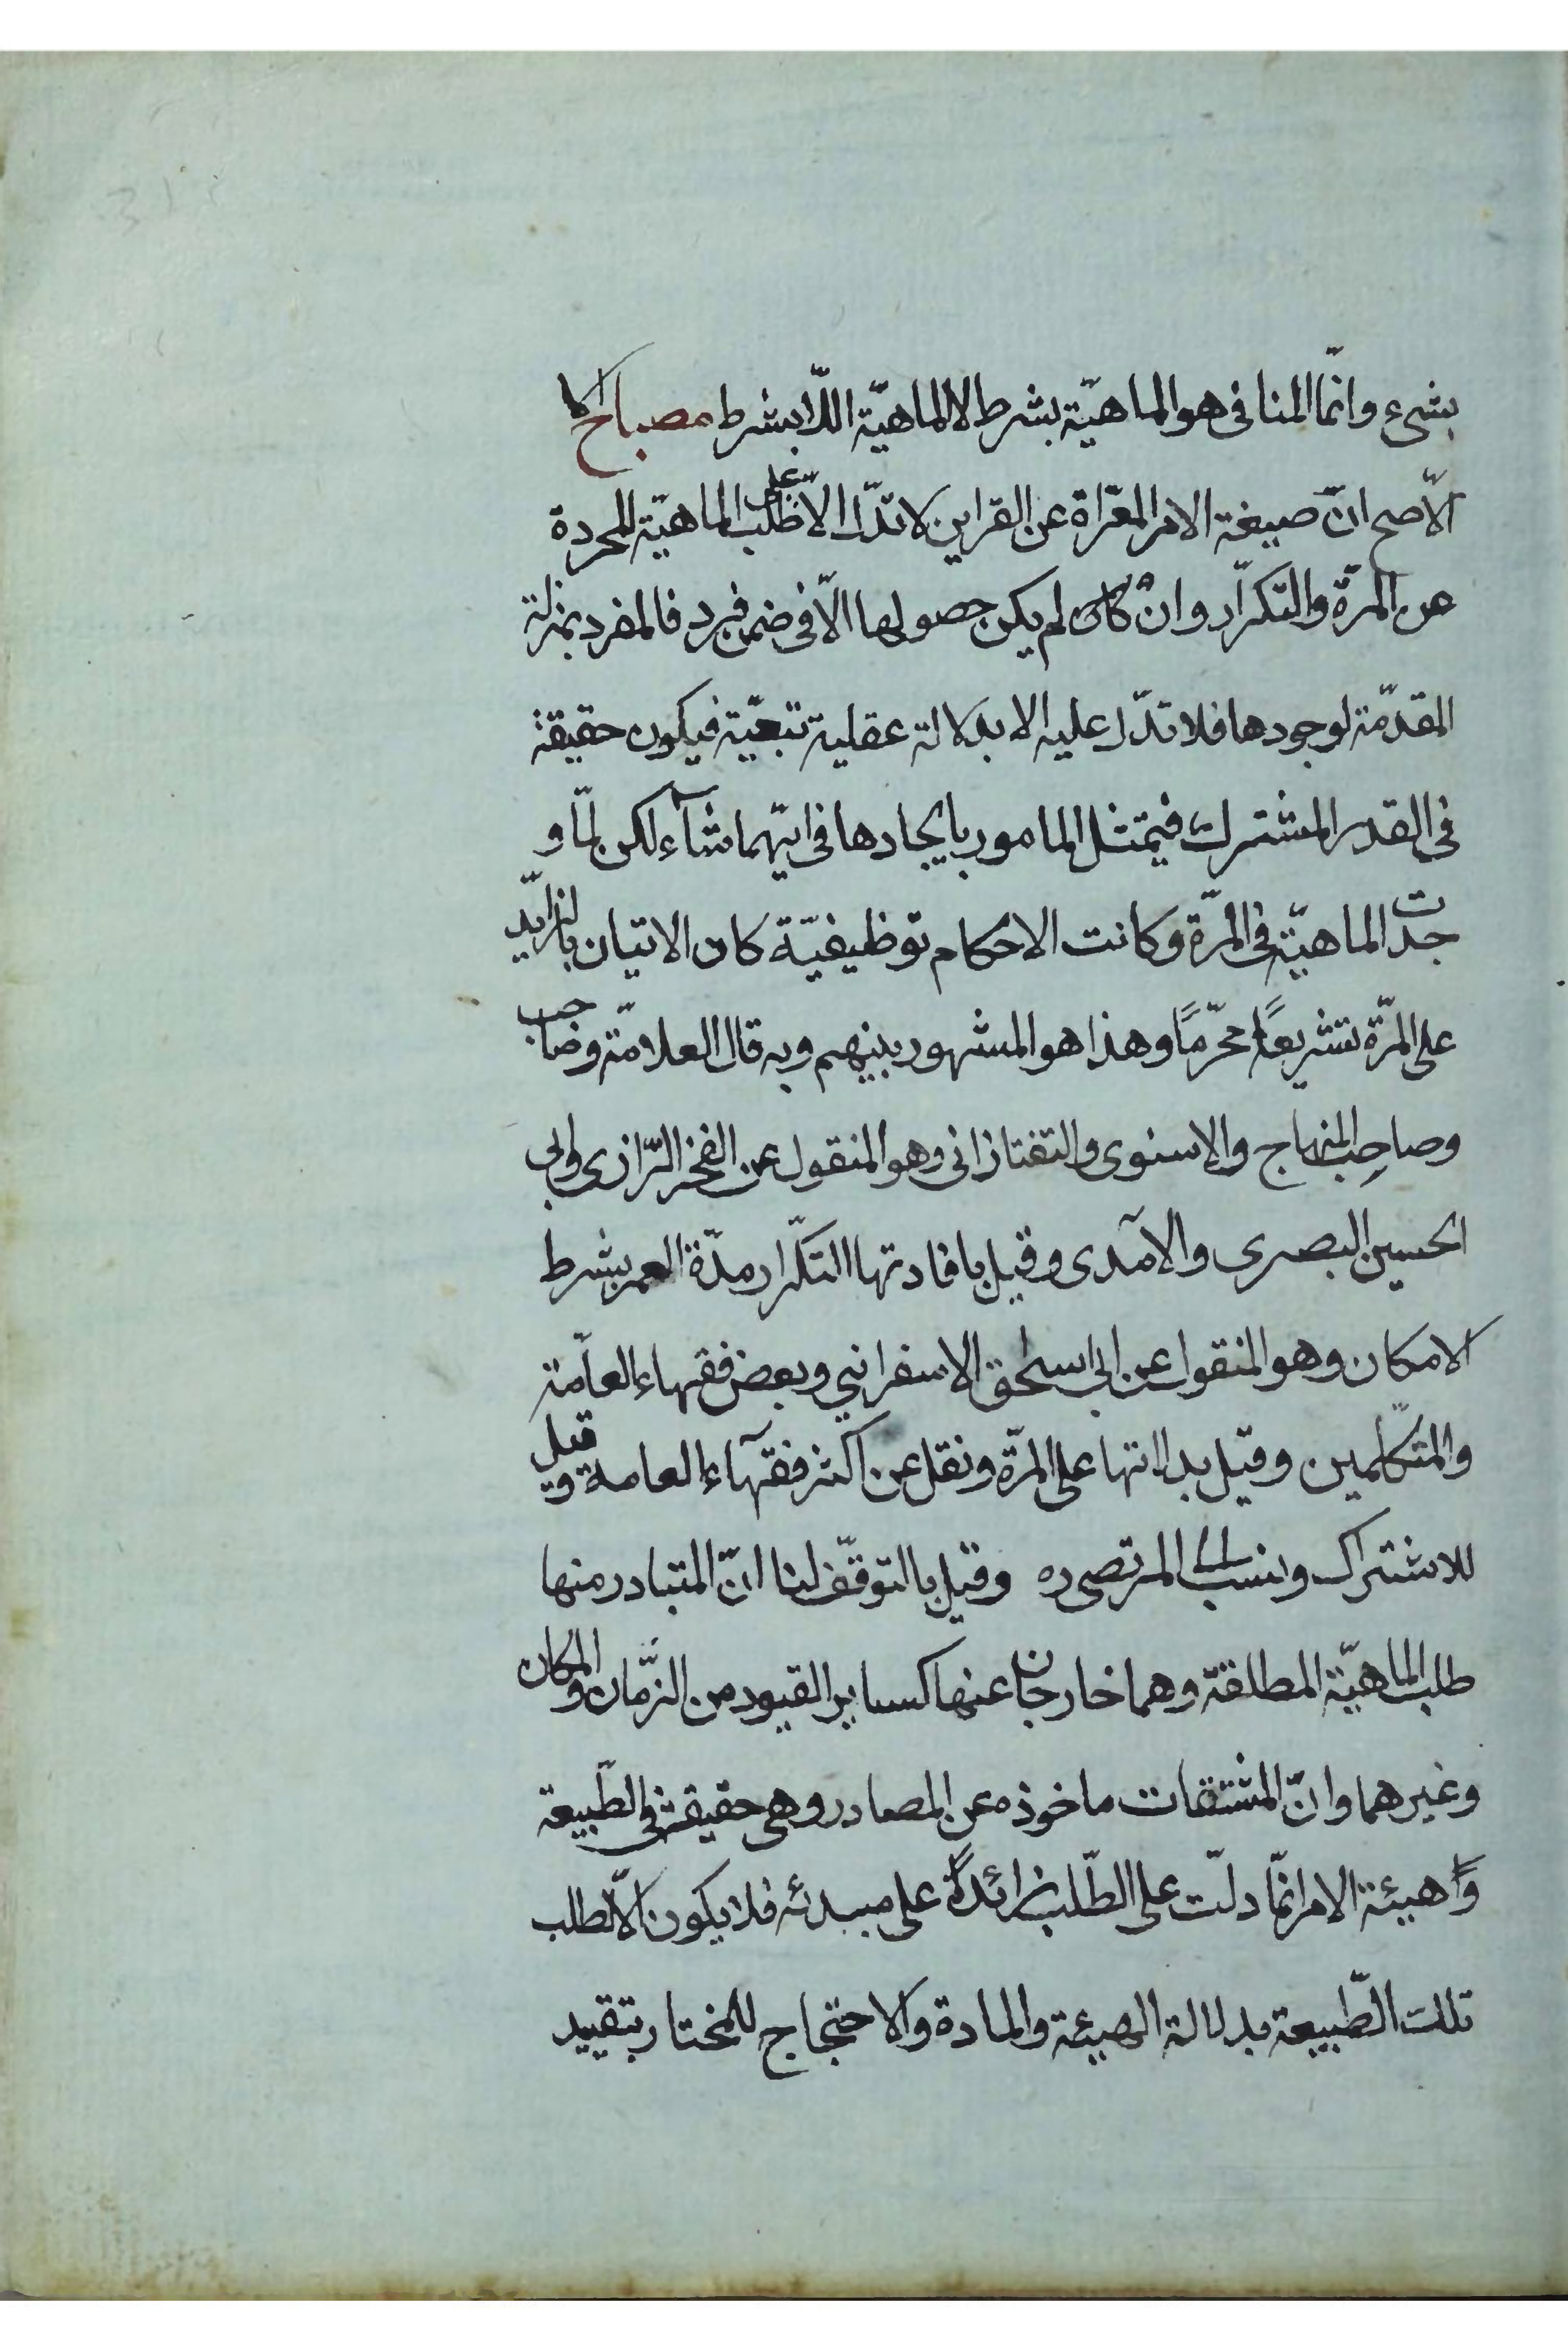 بشیء وانّما المنافی هو الماهیّة بشرط لا الماهیّة اللّا بشرط مصباح
الأصح انّ صیغة الامر المعرّاة عن القراین لا تدلّ الّا علی طلب الماهیّة المجردة
عن المرّة والتکرّار وان کان لم یکن حصولها الّا فی ضمن فرد فالمفرد بمنزلة
المقدّمة لوجودها فلا تدّل علیه الا بدلالة عقلیة تبعیّة فیکون حقیقة
فی القدر المشترک فیمتثل المامور بایجادها فی ایّهما شآء لکن لمّا و
جدت الماهیّة فی المرّة وکانت الاحکام توظیفیّة کان الاتیان بالزاید
علی المرّة تشریعًا محرّمًا وهذا هو المشهور بینهم وبه قال العلامّة وصاحب
وصاحِب المنهاج والإسنوی والتفتازانی وهو المنقول عن الفخر الرّازی وابی
الحسین البصری والآمدی وقیل بافادتها التکرّار مدّة العمر بشرط
الامکان وهو المنقول عن ابی اسحٰق الاسفرانیی وبعض فقهاء العامّة
والمتکلّمین وقیل بدلالتها علی المرّة ونقل عن اکثر فقهآء العامة وقیل
للاشتراک وینسب الی المرتضی ره وقیل بالتوقّف لنا انّ المتبادر منها
طلب الماهیّة المطلقة وهما خارجان عنها کسایر القیود من الزّمان والمکان
وغیرهما وانّ المشتقات ماخوذه عن المصادر وهی حقیقة فی الطّبیعة
وَاهیئة الامر انمّا دلّت علی الطّلب زائدةً علی مبدئه فلا یکون الّا لطلب
تلک الطّبیعة بدلالة الهیئة والمادة والاحتجاج للمختار بتقیید